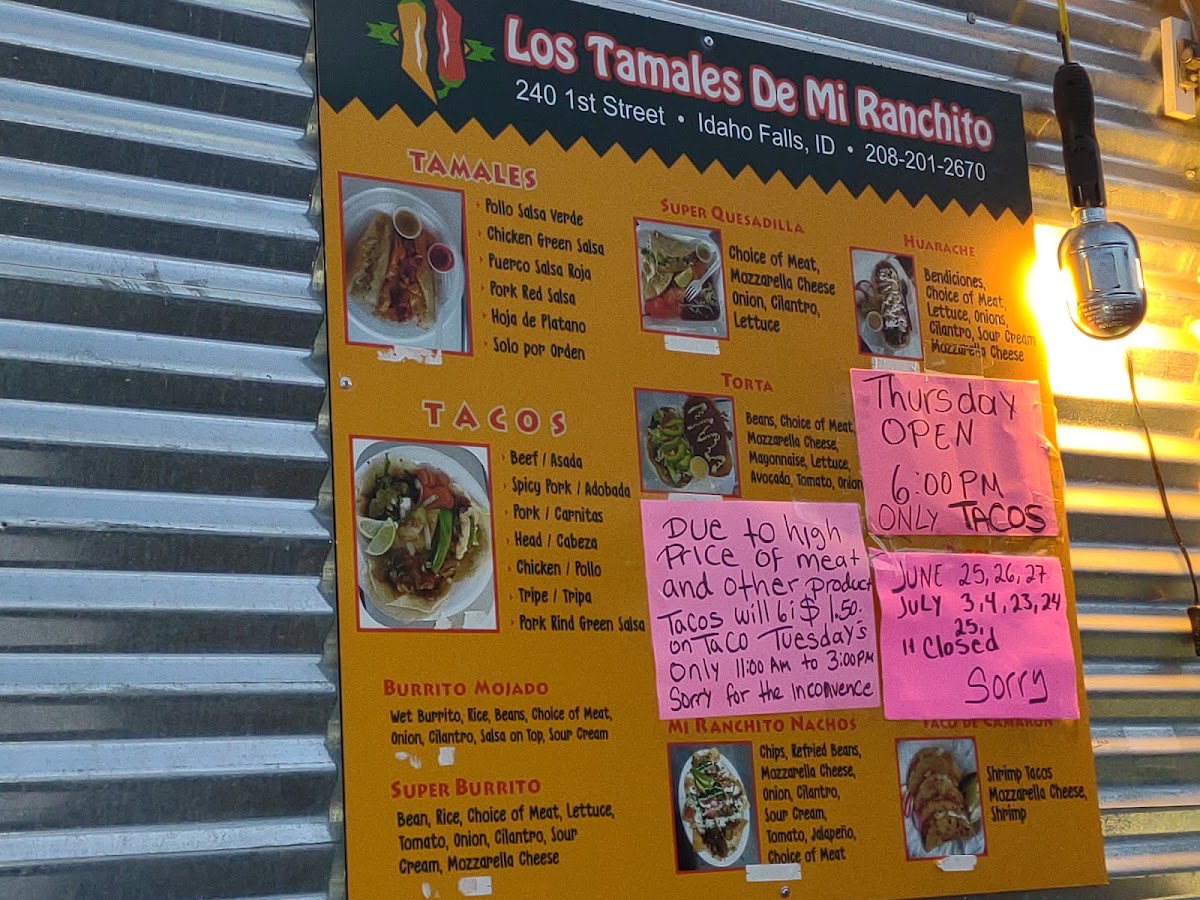 Los Tamales De Mi Ranchito
240 1st Street • Idaho Falls, ID • 208-201-2670
TAMALES
Pollo Salsa Verde
Chicken Green Salsa
Puerco Salsa Roja
Pork Red Salsa
Hoja de Platano
Solo por Orden
TACOS
Beef / Asada
Spicy Pork / Adobada
Pork / Carnitas
Head / Cabeza
Chicken / Pollo
Tripe / Tripa
Pork Rind Green Salsa
BURRITO MOJADO
Wet Burrito, Rice, Beans, Choice of Meat,
Onion, Cilantro, Salsa on Top, Sour Cream
SUPER BURRITO
Bean, Rice, Choice of Meat, Lettuce,
Tomato, Onion, Cilantro, Sour
Cream, Mozzarella Cheese
SUPER QUESADILLA
Choice of Meat,
Mozzarella Cheese
Onion, Cilantro,
Lettuce
TORTA
Beans, Choice of Meat,
Mozzarella Cheese,
Mayonnaise, Lettuce,
Avocado, Tomato, Onion
HUARACHE
Bendiciones,
Choice of Meat,
Lettuce, Onions,
Cilantro, Sour Cream
Mozzarella Cheese
Thursday
OPEN
6:00 PM
ONLY TACOS
DUE to high
Price of meat
and other product
Tacos will 6i $1.50.
on Taco Tuesday's
only 11:00 Am to 3:00PM
Sorry for the Inconvence
JUNE 25, 26, 27
JULY 3, 4, 23, 24
25,
closed
Sorry
MI RANCHITO NACHOS
Chips, Refried Beans,
Mozzarella Cheese,
Onion, Cilantro,
Sour Cream,
Tomato, Jalapeño,
Choice of Meat
TACO DE CAMARON
Shrimp Tacos
Mozzarella Cheese,
Shrimp